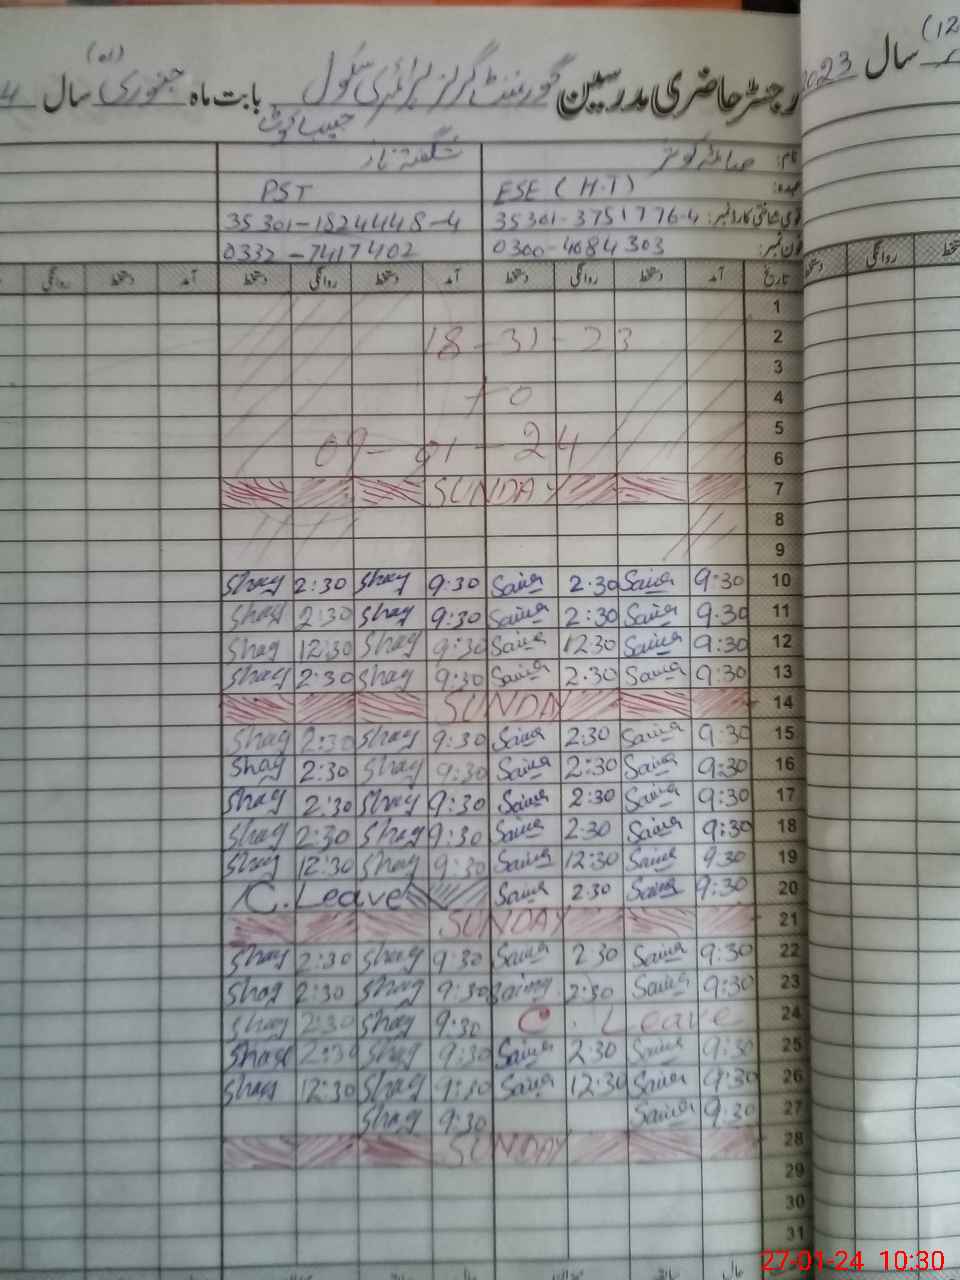 رجسٹر حاضری مدرسین گورنمنٹ گرلز پرائمری سکول بابت ماہ جنوری (01) سال 4
حبیب کوٹ
2023 سال (12
نام: صائمہ کوثر شگفتہ ناز
عہدہ: ESE (H.T) PST
قومی شناختی کارڈ نمبر: 35301-3751776-4 35301-1824448-4
فون نمبر: 0300-4084303 0332-7417402
تاریخ آمد دستخط روانگی دستخط آمد دستخط روانگی دستخط آمد دستخط روانگی
1
2 18-31-23
3
4 to
5
6 09-01-24
7 SUNDAY
8
9
10 9:30 Saima 2:30 Saima 9:30 Shag 2:30 Shag
11 9:30 Saima 2:30 Saima 9:30 Shag 2:30 Shag
12 9:30 Saima 12:30 Saima 9:30 Shag 12:30 Shag
13 9:30 Saima 2:30 Saima 9:30 Shag 2:30 Shag
14 SUNDAY
15 9:30 Saima 2:30 Saima 9:30 Shag 2:30 Shag
16 9:30 Saima 2:30 Saima 9:30 Shag 2:30 Shag
17 9:30 Saima 2:30 Saima 9:30 Shag 2:30 Shag
18 9:30 Saima 2:30 Saima 9:30 Shag 2:30 Shag
19 9:30 Saima 12:30 Saima 9:30 Shag 12:30 Shag
20 9:30 Saima 2:30 Saima C. Leave
21 SUNDAY
22 9:30 Saima 2:30 Saima 9:30 Shag 2:30 Shag
23 9:30 Saima 2:30 Saima 9:30 Shag 2:30 Shag
24 C. Leave 9:30 Shag 2:30 Shag
25 9:30 Saima 2:30 Saima 9:30 Shag 2:30 Shag
26 9:30 Saima 12:30 Saima 9:30 Shag 12:30 Shag
27 9:30 Saima 9:30 Shag
28 SUNDAY
29
30
31
27-01-24 10:30